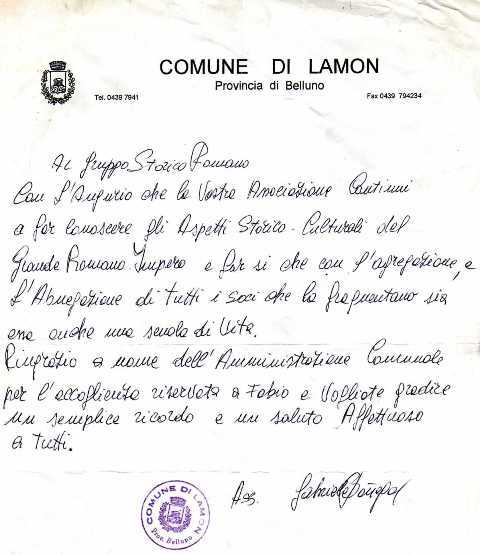 COMUNE DI LAMON
Provincia di Belluno
Tel. 0439 7941
Fax 0439 794234
Al Gruppo Storico Romano
Con l'Augurio che la Vostra Associazione Continui
a far conoscere gli Aspetti Storico-Culturali del
Grande Romano Impero e far si che con l'agregazione, e
l'Abnegazione di tutti i soci che la frequentano sia
anche una scuola di Vita.
Ringrazio a nome dell'Amministrazione Comunale
per l'accoglienza riservata a Fabio e Vogliate gradire
un semplice ricordo e un saluto Affettuoso
a tutti.
Ass. Gabriele
COMUNE DI LAMON
Prov. Belluno